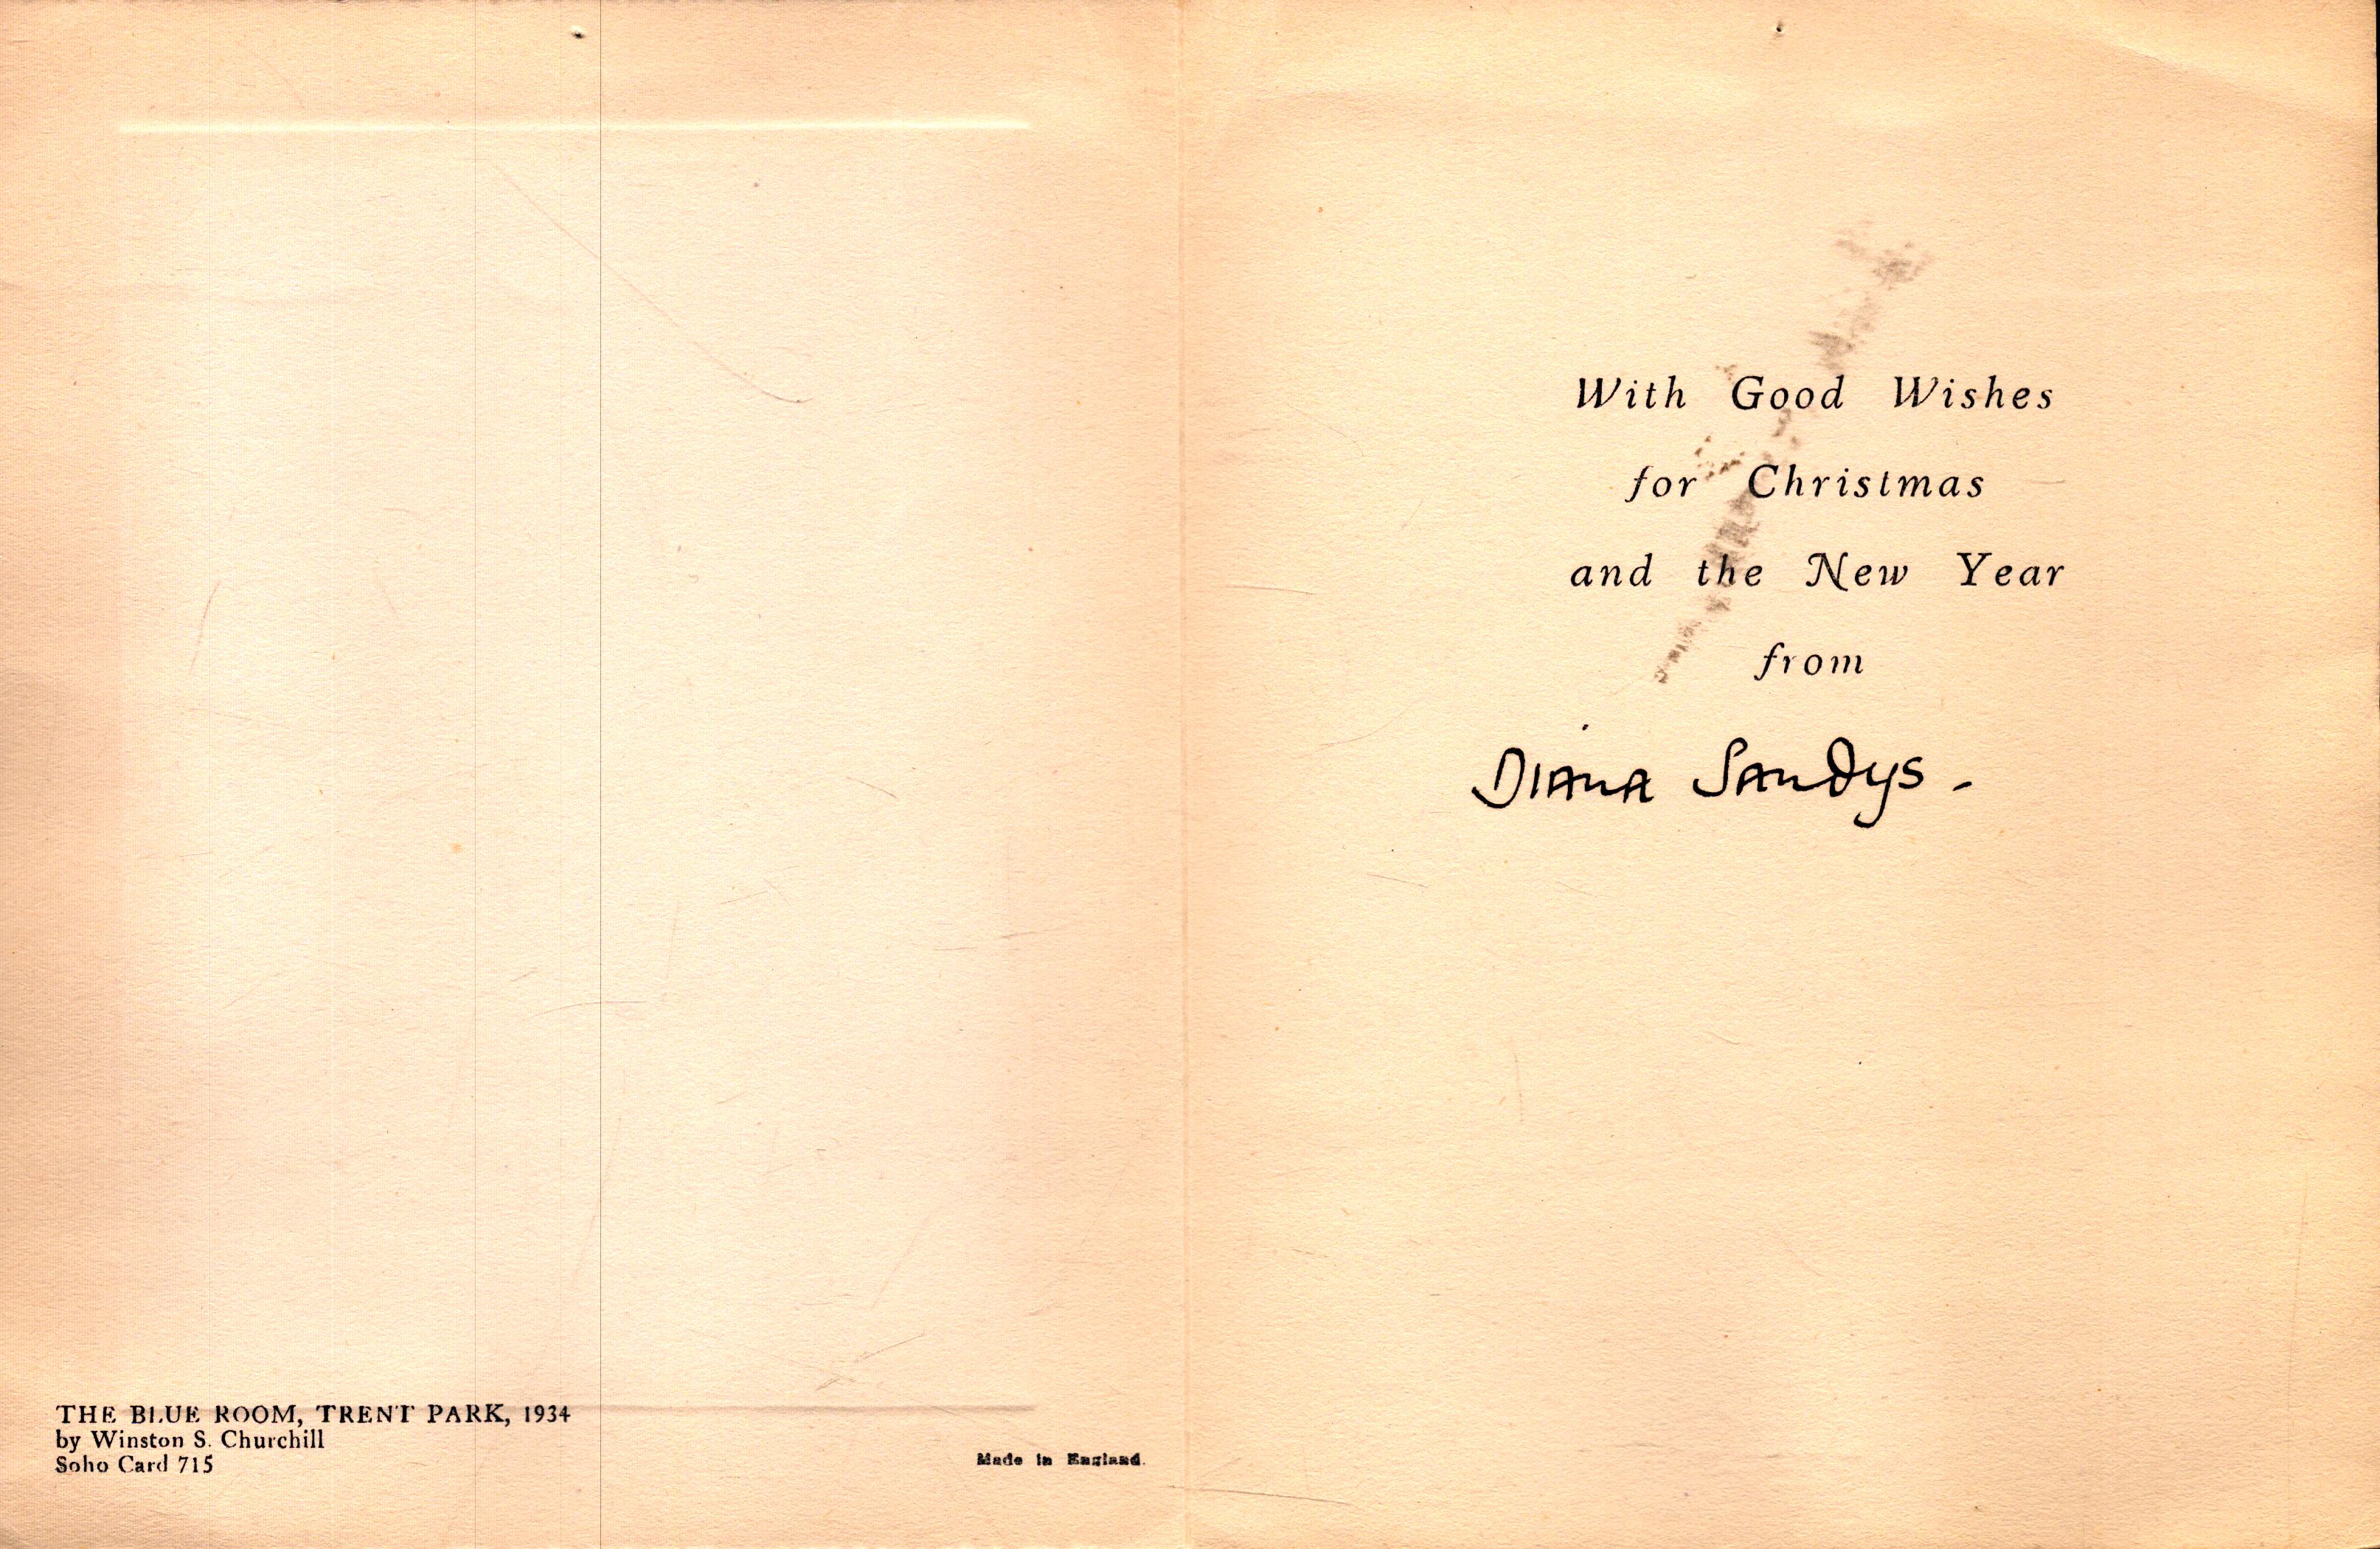 THE BLUE ROOM, TRENT PARK, 1934
by Winston S. Churchill
Soho Card 715
Made in England.
With Good Wishes
for Christmas
and the New Year
from
Diana Sandys -